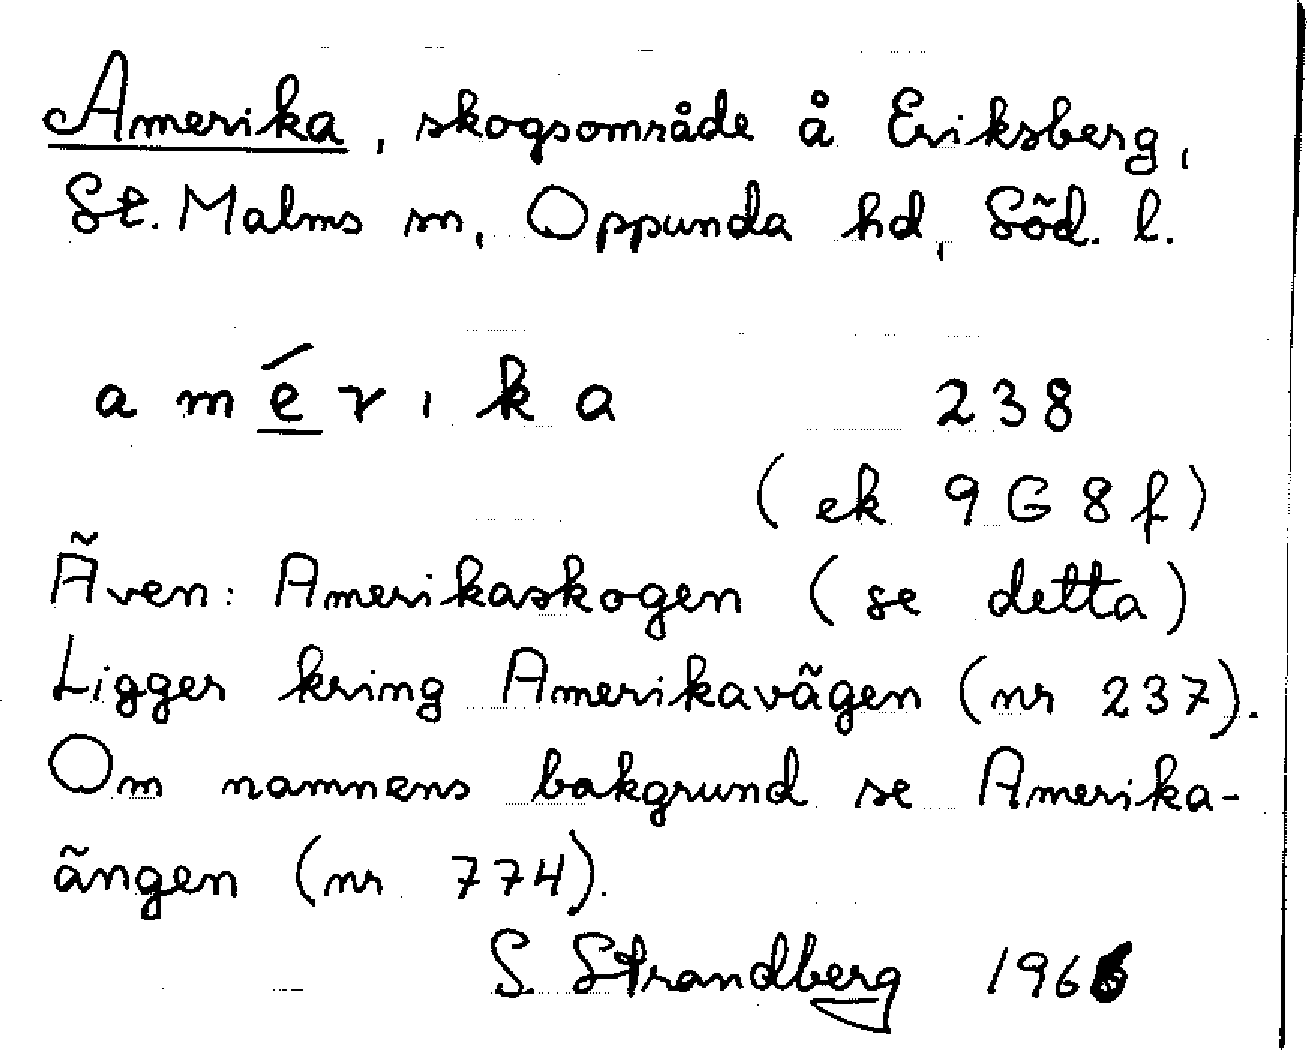 Amerika, skogsområde å Eriksberg,
St. Malms sn, Oppunda hd, Söd. l.
a m é r ı k a 238
(ek 9G8f)
Även: Amerikaskogen (se detta)
Ligger kring Amerikavägen (nr 237).
Om namnens bakgrund se Amerika-
ängen (nr 774).
S. Strandberg